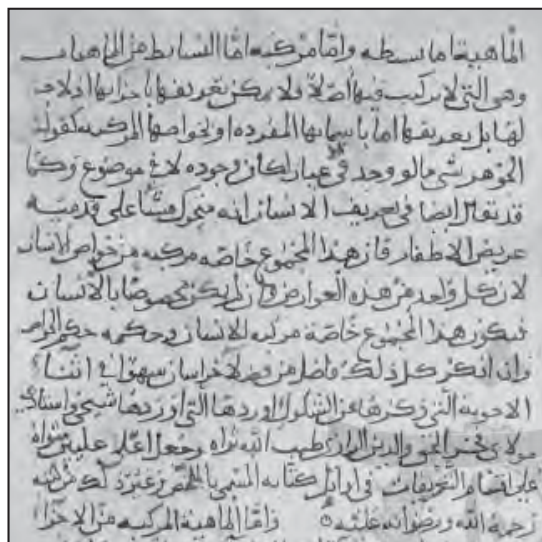 الماهية اما بسيطه واما مركبه اما البسايط من الماهيات
وهي التي لا تركيب فيها اصلا ولا يمكن تعريفها باجزايها اذ لا جزء
لها بل تعريفها اما باسمايها المفرده او لخواصها المركبه كقولنا
الجوهر شي ما لو وجد في لكان وجوده لا في موضوع وكما
قد يقال ايضا في تعريف الانسان انه متحرك مشا على قدميه
عريض الاظفار فان هذا المجموع خاصه مركبه من خواص الانسان
لان كل واحد من هذه العوارض وان لم يكن مخصوصا بالانسان
فيكون هذا المجموع خاصة مركبه للانسان وحكمه حكم الخواص
وان انكر كل ذلك فاضل من خراسان في اثنا
الاجوبة التي ذكرها عن الشكوك اوردها التي اوردها شيخي واستادي
مولاي فخر الحق والدين الرازي طيب الله ثراه وجعل اعلى عليين مثواه
على اقسام التعريفات في اوايل كتابه المسمى بالملخص
رحمة الله ورضوانه عليه واما الماهية المركبه من الاجزا